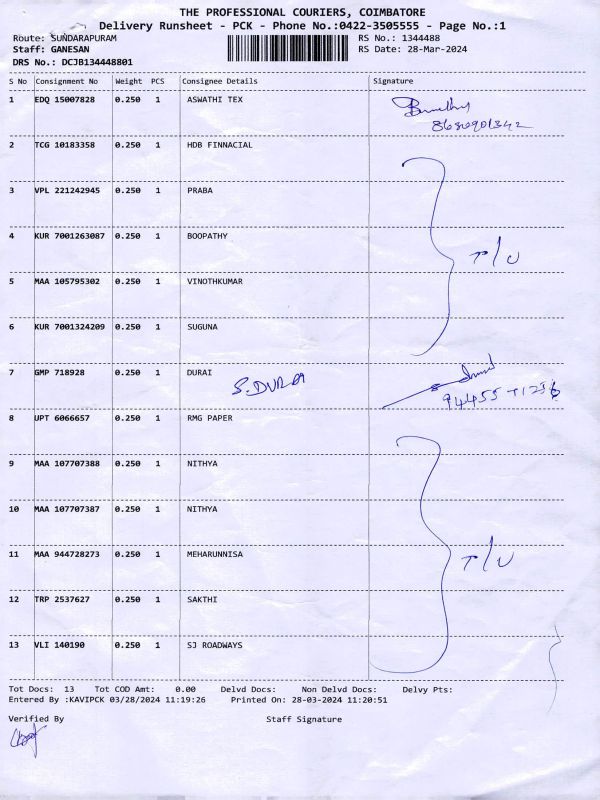 THE PROFESSIONAL COURIERS, COIMBATORE
Delivery Runsheet - PCK - Phone No.:0422-3505555 - Page No.:1
Route: SUNDARAPURAM RS No.: 1344488
Staff: GANESAN RS Date: 28-Mar-2024
DRS No.: DCJB134448801
S No Consignment No Weight PCS Consignee Details Signature
1 EDQ 15007828 0.250 1 ASWATHI TEX
2 TCG 10183358 0.250 1 HDB FINNACIAL
3 VPL 221242945 0.250 1 PRABA
4 KUR 7001263087 0.250 1 BOOPATHY T/U
5 MAA 105795302 0.250 1 VINOTHKUMAR
6 KUR 7001324209 0.250 1 SUGUNA
7 GMP 718928 0.250 1 DURAI
S.DURAI
8 UPT 6066657 0.250 1 RMG PAPER
9 MAA 107707388 0.250 1 NITHYA
10 MAA 107707387 0.250 1 NITHYA
11 MAA 944728273 0.250 1 MEHARUNNISA T/U
12 TRP 2537627 0.250 1 SAKTHI
13 VLI 140190 0.250 1 SJ ROADWAYS
Tot Docs: 13 Tot COD Amt: 0.00 Delvd Docs: Non Delvd Docs: Delvy Pts:
Entered By :KAVIPCK 03/28/2024 11:19:26 Printed On: 28-03-2024 11:20:51
Verified By Staff Signature